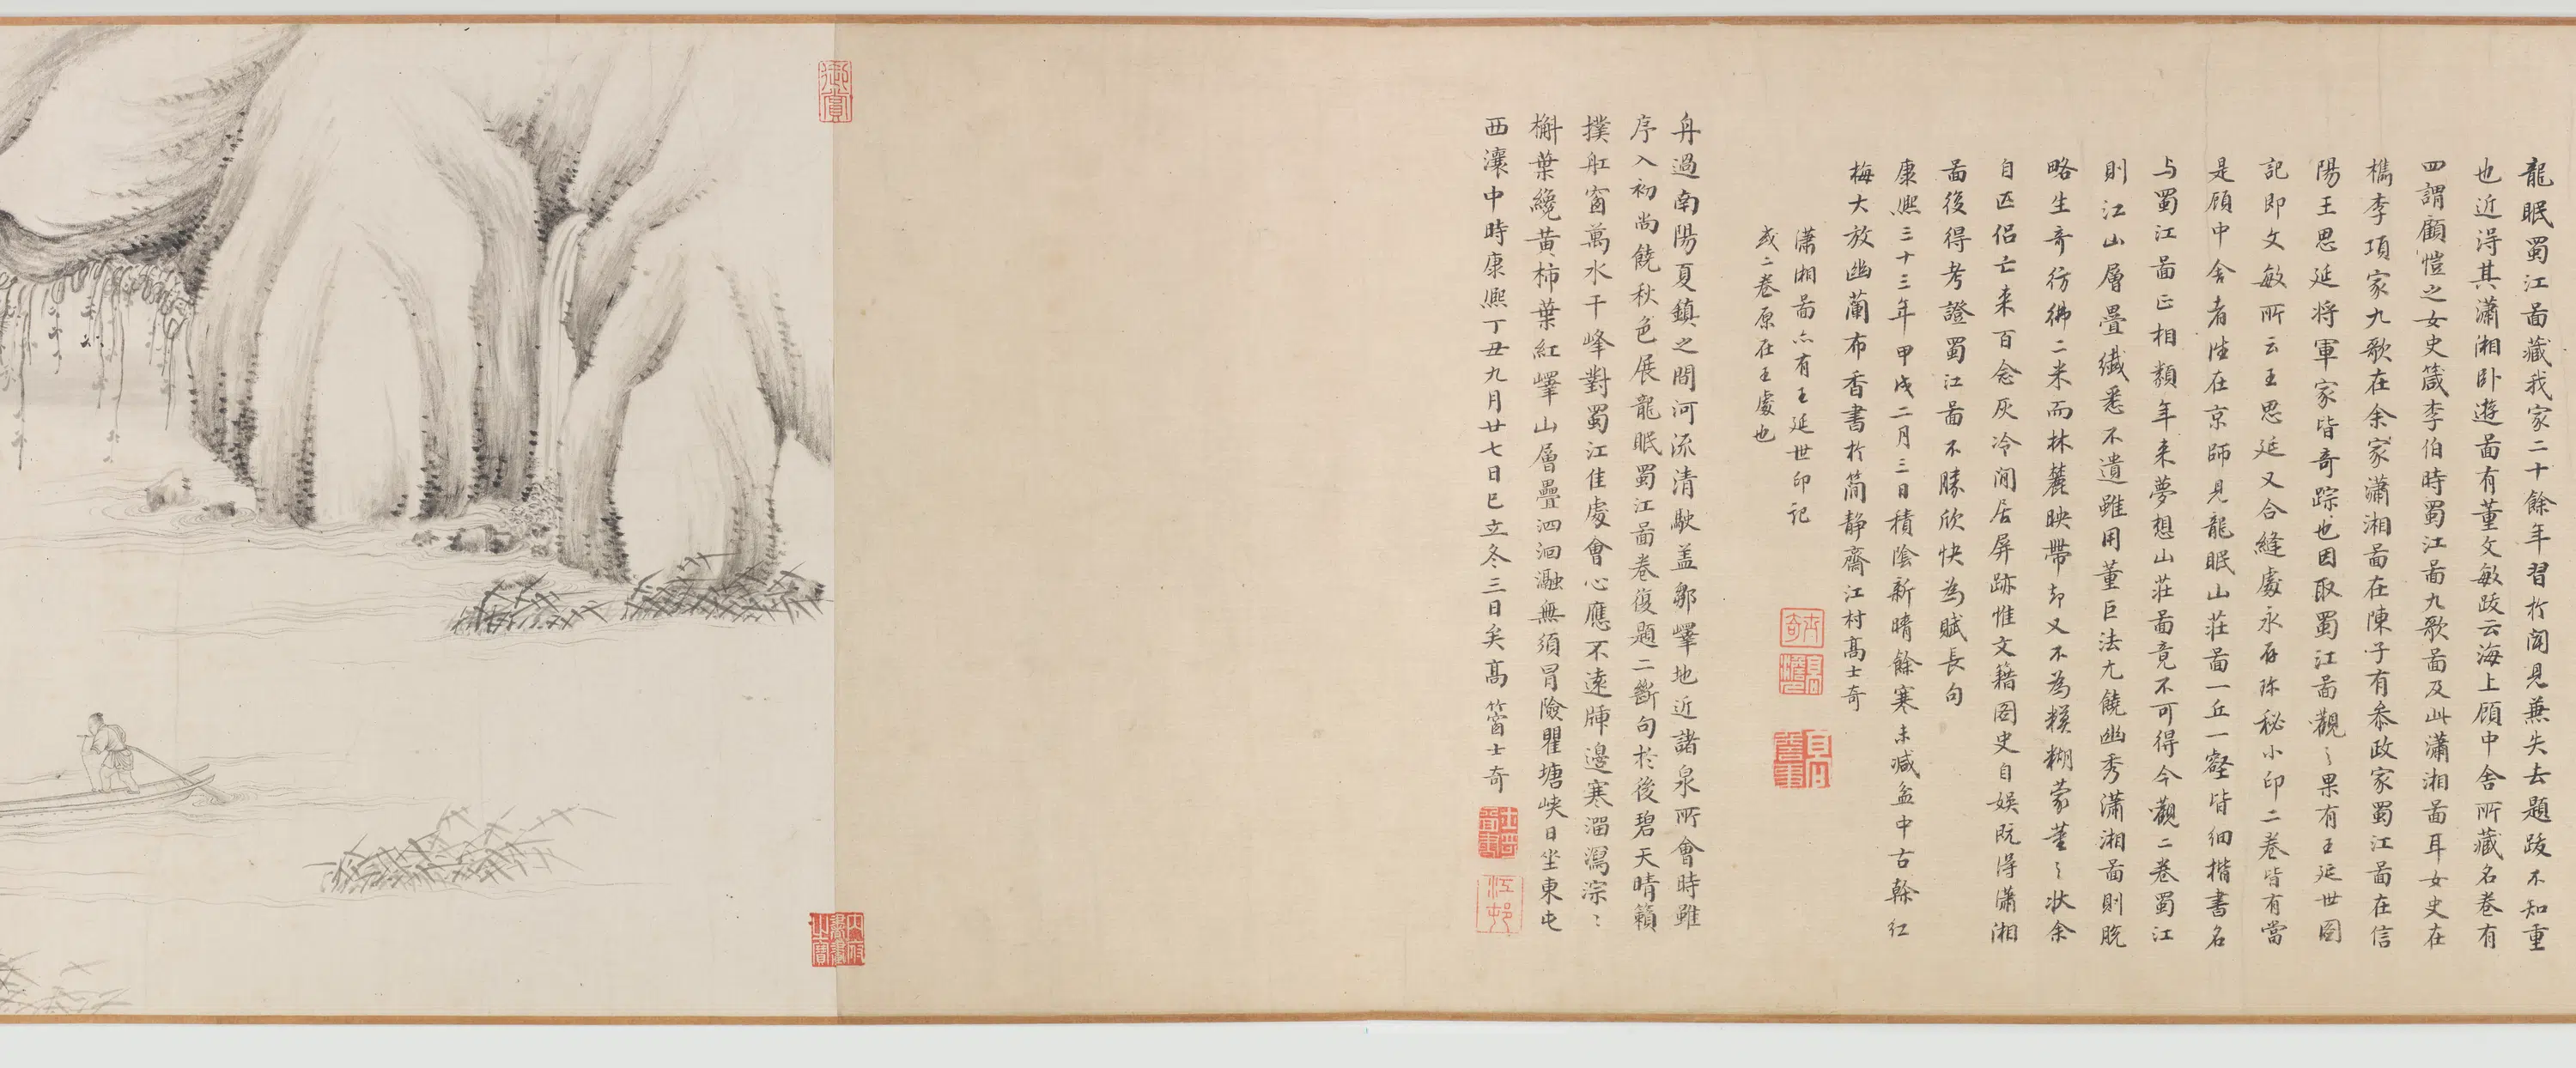 龍眠蜀江啚藏我家二十餘年習於聞見兼失去題跋不知重
也近得其瀟湘卧遊啚有董文敏跋云海上顧中舍所藏名卷有
四謂顧愷之女史箴李伯時蜀江啚九歌啚及此瀟湘啚耳女史在
檇李項家九歌在余家瀟湘啚在陳子有叅政家蜀江啚在信
陽王思延将軍家皆奇踪也因取蜀江啚觀〻果有王延世圖
記即文敏所云王思延又合縫處永存珎秘小印二卷皆有當
是顧中舍者陸在京師見龍眠山莊啚一丘一壑皆細楷書名
与蜀江啚正相類年来夢想山莊啚竟不可得今觀二卷蜀江
則江山層疊纎悉不遺雖用董巨法尤饒幽秀瀟湘啚則脱
略生奇彷彿二米而林麓映帶却又不為糢糊蒙董〻状余
自匹侣亡来百念灰冷閒居屏跡惟文籍圖史自娱既得瀟湘
啚後得考證蜀江啚不勝欣快為賦長句
康熈三十三年甲戌二月三日積陰新晴餘寒未减盆中古榦紅
梅大放幽蘭布香書於簡静齋江村髙士奇
瀟湘啚亦有王延世印記
或二卷原在王處也
士奇
舟過南陽夏鎮之間河流清駛盖鄒嶧地近諸泉所會時雖
序入初尚饒秋色展龍眠蜀江啚卷復題二斷句於後碧天晴籟
撲舡窗萬水千峰對蜀江佳處會心應不遠牀邊寒溜瀉淙〻
槲葉纔黄柿葉紅嶧山層疊泗洄瀜無須冐險瞿塘峽日坐東屯
西瀼中時康熈丁丑九月廿七日巳立冬三日矣髙士奇
江邨
御賞
内府書畫之寶